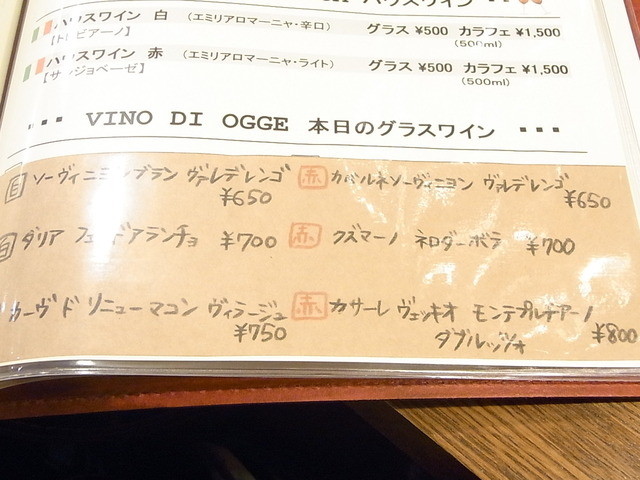 ハウスワイン
ハウスワイン 白 (エミリアロマーニャ・辛口) グラス ¥500 カラフェ ¥1,500
【トレビアーノ】 (500ml)
ハウスワイン 赤 (エミリアロマーニャ・ライト) グラス ¥500 カラフェ ¥1,500
【サンジョベーゼ】 (500ml)
VINO DI OGGE 本日のグラスワイン
白 ソーヴィニヨンブラン ヴァレデレンゴ ¥650
赤 カベルネソーヴィニヨン ヴァルデレンゴ ¥650
白 ダリア フェウドアランチョ ¥700
赤 クズマーノ ネロダーボラ ¥700
カーヴ ド リニューマコン ヴィラージュ ¥750
赤 カサーレ ヴェッキオ モンテプルチアーノ
ダブルッツォ ¥800